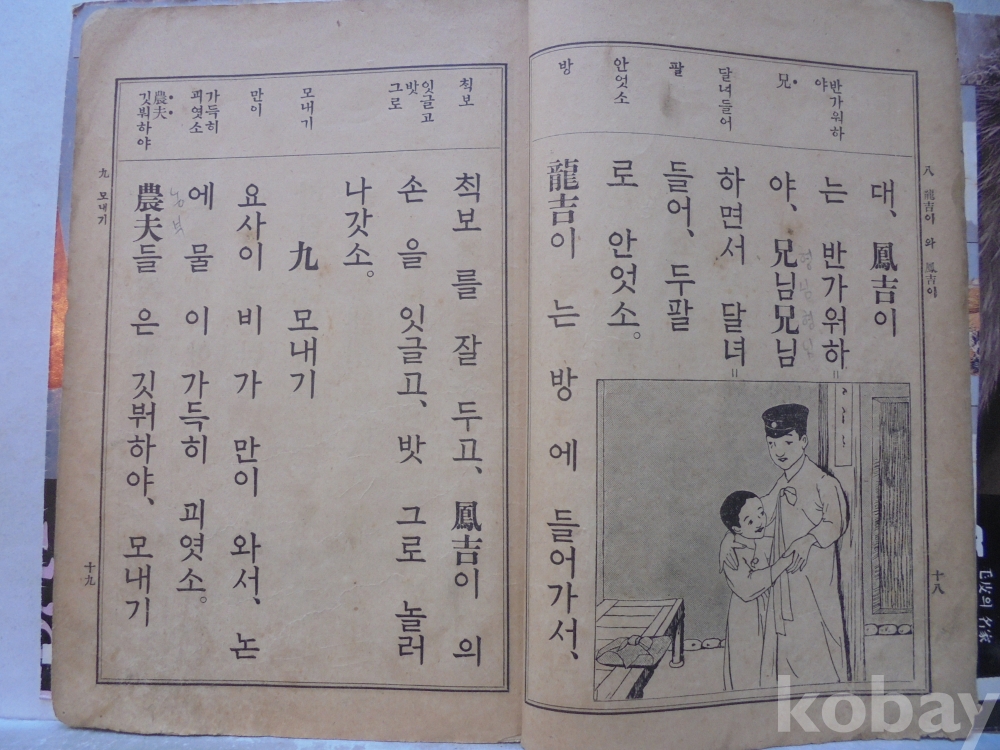 八 龍吉이 와 鳳吉이
十八
반가워하
야
兄
달녀들어
팔
안엇소
방
대、鳳吉이
는 반가워하=
야、兄님兄님
형님형님
하면서 달녀=
들어、두팔
로 안엇소。
龍吉이 는 방 에 들어가서、
척보
잇글고
밧
그로
모내기
만이
가득히
괴엿소
農夫
깃붜하야
척보 를 잘 두고、鳳吉이 의
손 을 잇글고、밧 그로 놀러
나갓소。
九 모내기
요사이 비 가 만이 와서、논
에 물 이 가득히 괴엿소。
농부
農夫들 은 깃붜하야、모내기
九 모내기
十九
毛皮의 名家
kobay